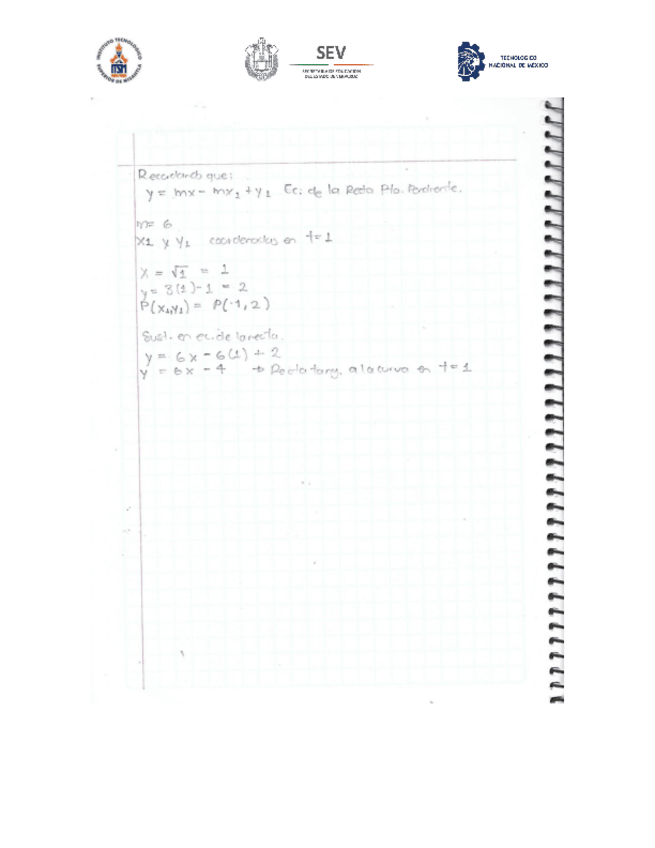 INSTITUTO TECNOLOGICO
SUPERIOR DE MISANTLA
ITSM
SEV
SECRETARÍA DE EDUCACIÓN
DEL ESTADO DE VERACRUZ
TECNOLOGICO
NACIONAL DE MÉXICO
Recordando que:
y = mx - mx₁ + y₁ Ec. de la Recta Pto. Pendiente.
m= 6
x₁ y y₁ coordenadas en t=1
x = √1 = 1
y = 3(1)-1 = 2
P(x₁,y₁) = P(-1,2)
Sust. en ec. de la recta.
y = 6x - 6(1) + 2
y = 6x - 4 → Recta tang. a la curva en t=1